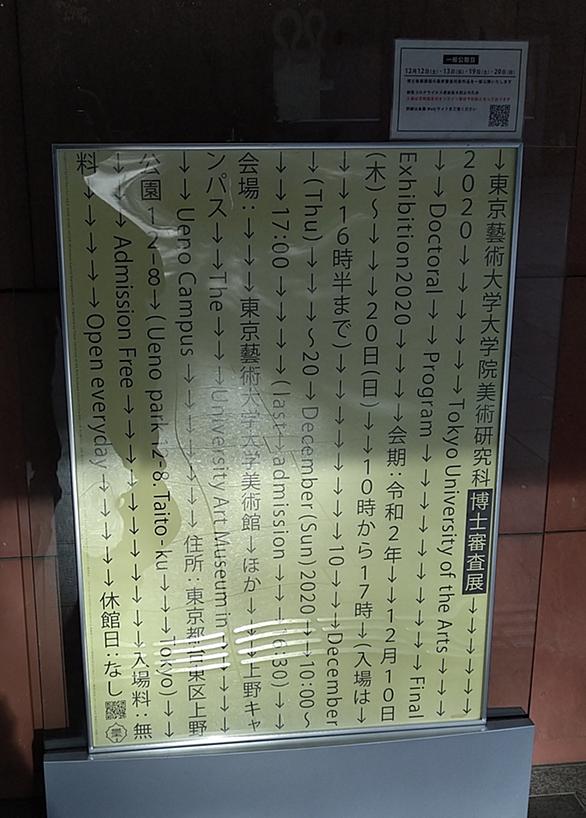 一般公開日
12月12日(土)・13日(日)・19日(土)・20日(日)
→東京藝術大学大学院美術研究科博士審査展→→→→→
2020→→→→→→Tokyo University of the Arts→→→
→→Doctoral→→Program→→→→→→→→→Final
Exhibition 2020→→→→会期:令和2年→→12月10日
(木)〜→→→20日(日)→→10時から17時→(入場は→
→→16時半まで)→→→→→→→→→10→→December
→(Thu)→→→〜20→December(Sun)2020→→10:00〜
→→17:00→→→→→(last→admission→→→16:30)→→
会場:→→→→東京藝術大学大学美術館→ほか→→→上野キャ
ンパス→→The→→→University Art Museum in→→→→
→→Ueno Campus→→→→→→→住所:東京都台東区上野
公園12-8→(Ueno park 12-8, Taito-ku→→→Tokyo)→→
→→→Admission Free→→→→→→→→→→→入場料:無
料→→→→→→Open everyday→→→→→休館日:なし